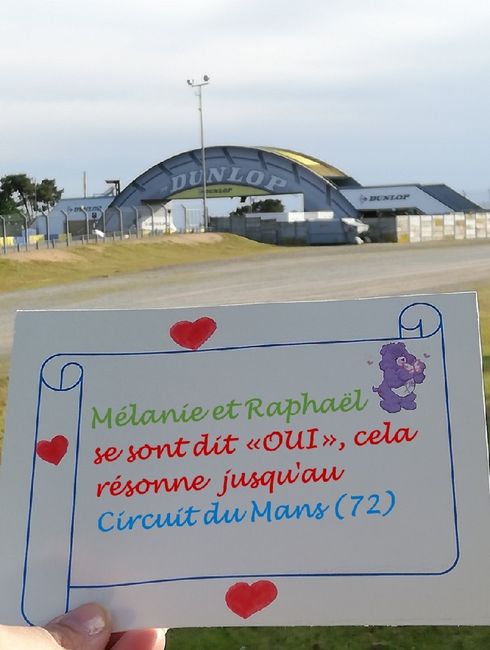 DUNLOP
DUNLOP
DUNLOP
Mélanie et Raphaël
se sont dit «OUI», cela
résonne jusqu'au
Circuit du Mans (72)